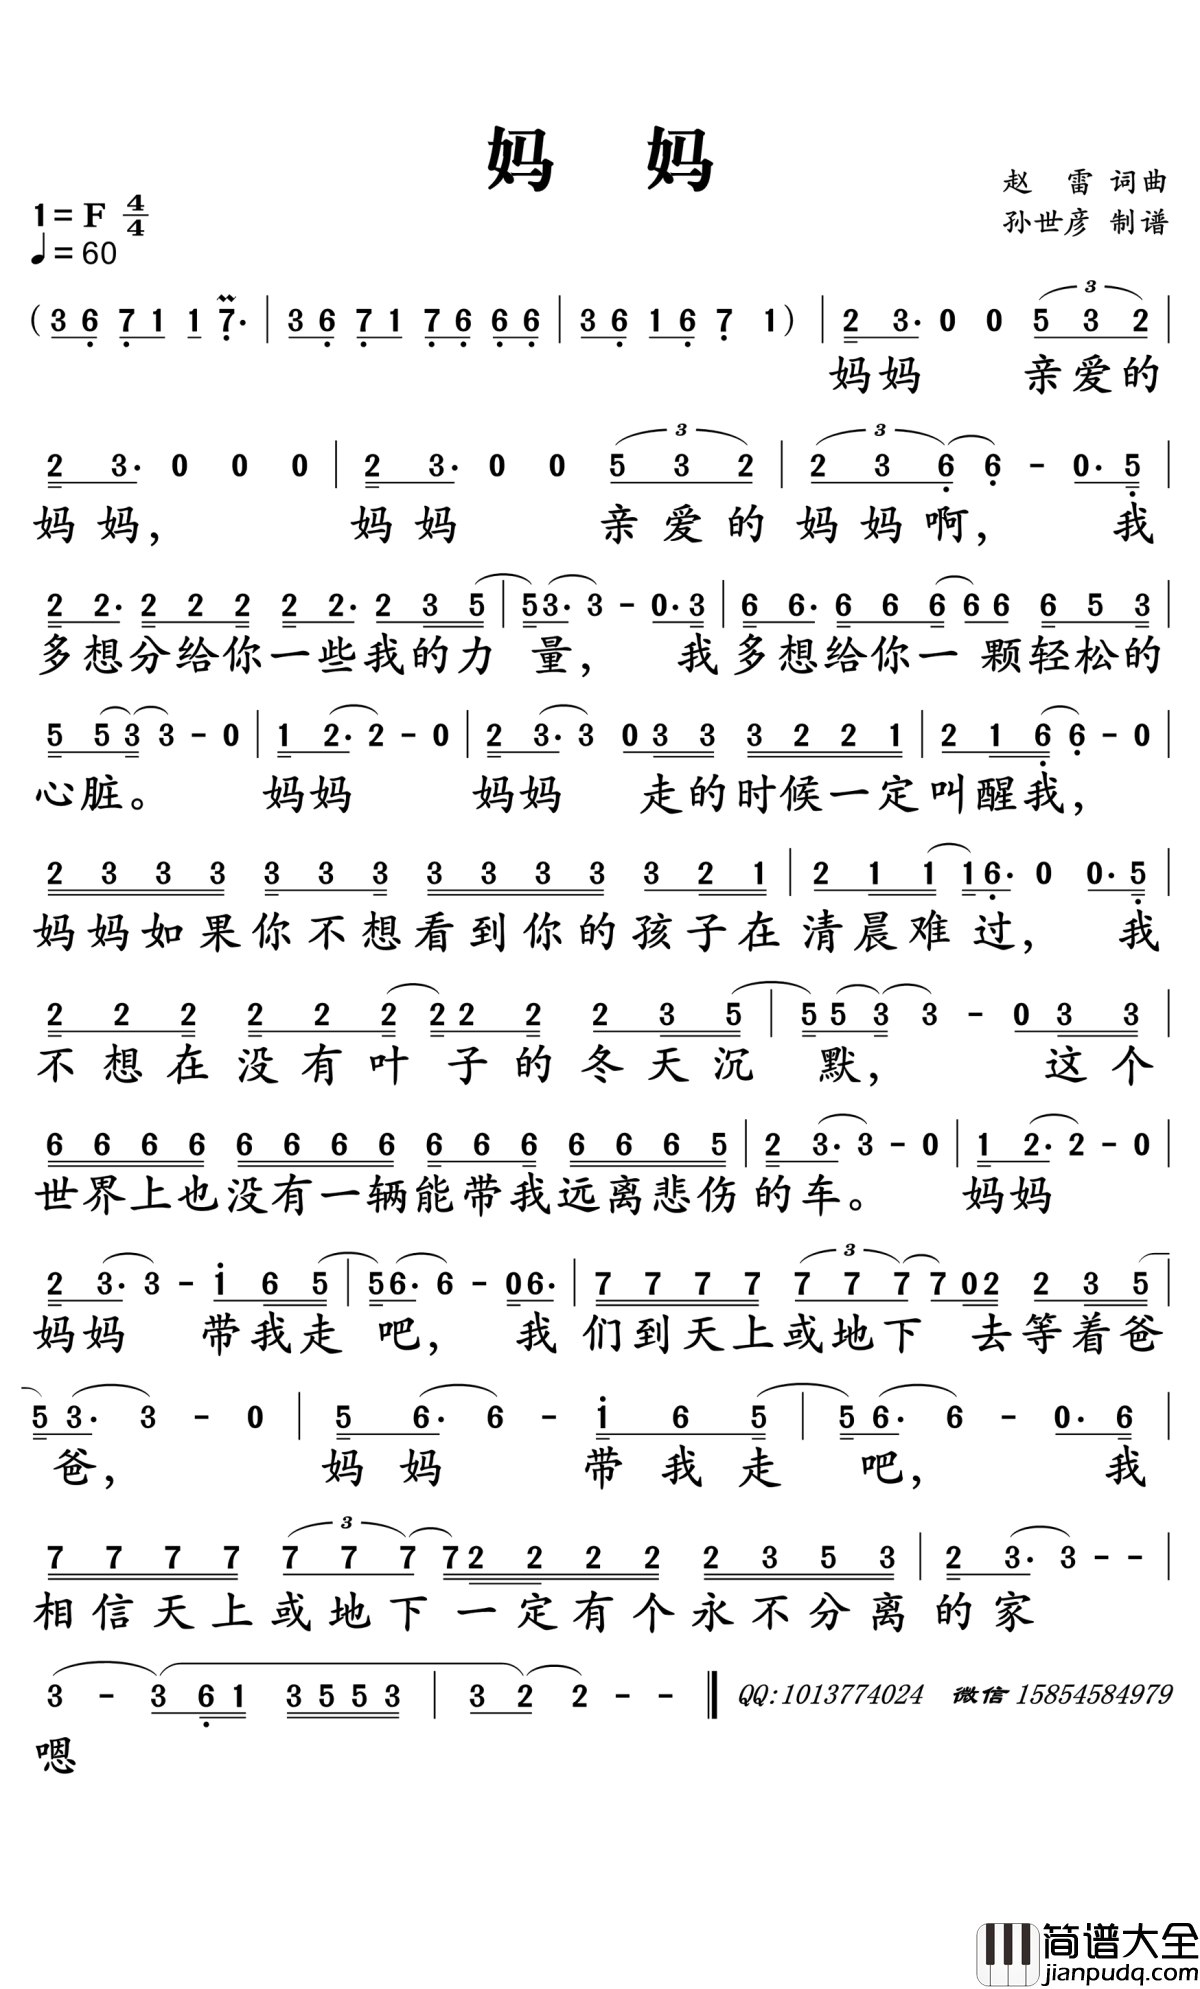 妈 妈
赵 雷 词曲
1=F 4/4
孙世彦 制谱
♩=60
(3 6 7 1 1 7· | 3 6 7 1 7 6 6 6 | 3 6 1 6 7 1) | 2 3· 0 0 5 3 2 |
妈妈 亲爱的
2 3· 0 0 0 | 2 3· 0 0 5 3 2 | 2 3 6 6 - 0· 5 |
妈妈， 妈妈 亲爱的妈妈啊， 我
2 2· 2 2 2 2 2· 2 3 5 | 5 3· 3 - 0· 3 | 6 6· 6 6 6 6 6 6 5 3 |
多想分给你一些我的力 量， 我多想给你一 颗轻松的
5 5 3 3 - 0 | 1 2· 2 - 0 | 2 3· 3 0 3 3 3 2 2 1 | 2 1 6 6 - 0
心脏。 妈妈 妈妈 走的时候一定叫醒我，
2 3 3 3 3 3 3 3 3 3 3 3 2 1 | 2 1 1 1 6· 0 0· 5 |
妈妈如果你不想看到你的孩子在清晨难过， 我
2 2 2 2 2 2 2 2 2 2 3 5 | 5 5 3 3 - 0 3 3 |
不想在没有叶子的冬天沉 默， 这个
6 6 6 6 6 6 6 6 6 6 6 6 6 6 5 | 2 3· 3 - 0 | 1 2· 2 - 0 |
世界上也没有一辆能带我远离悲伤的车。 妈妈
2 3· 3 - 1 6 5 | 5 6· 6 - 0 6· | 7 7 7 7 7 7 7 7 0 2 2 3 5 |
妈妈 带我走 吧， 我 们到天上或地下 去等着爸
5 3· 3 - 0 | 5 6· 6 - 1 6 5 | 5 6· 6 - 0· 6 |
爸， 妈妈 带我走 吧， 我
7 7 7 7 7 7 7 7 2 2 2 2 2 3 5 3 | 2 3· 3 - - |
相信天上或地下一定有个永不分离的家
3 - 3 6 1 3 5 5 3 | 3 2 2 - - ‖ QQ:1013774024 微信 15854584979
嗯
简谱大全
jianpudq.com